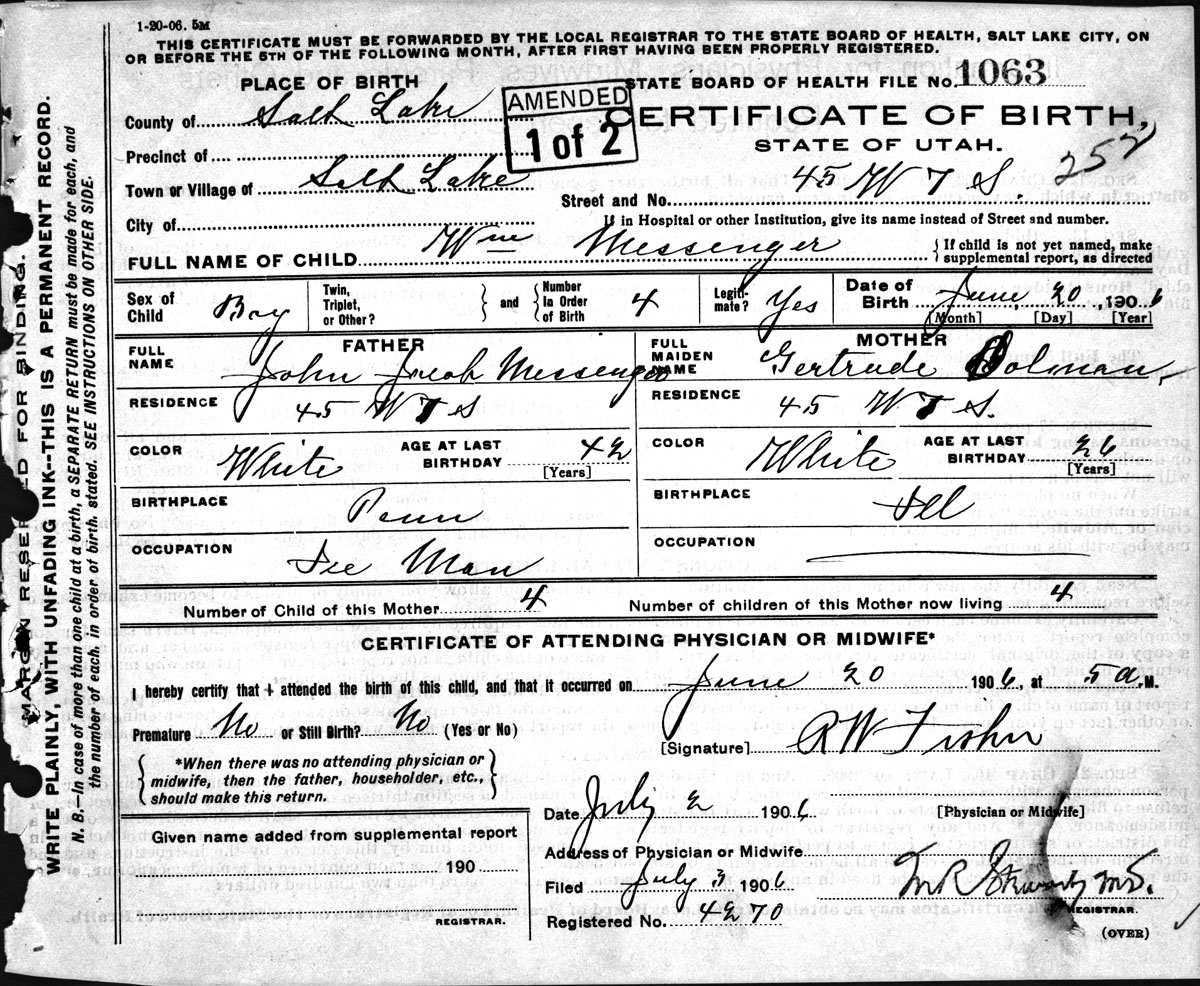 1-20-06. 5M
THIS CERTIFICATE MUST BE FORWARDED BY THE LOCAL REGISTRAR TO THE STATE BOARD OF HEALTH, SALT LAKE CITY, ON
OR BEFORE THE 5TH OF THE FOLLOWING MONTH, AFTER FIRST HAVING BEEN PROPERLY REGISTERED.
PLACE OF BIRTH
STATE BOARD OF HEALTH FILE No. 1063
AMENDED
1 of 2
CERTIFICATE OF BIRTH,
STATE OF UTAH.
252
County of Salt Lake
Precinct of
Town or Village of Salt Lake
Street and No. 45 W 7 S.
City of
If in Hospital or other Institution, give its name instead of Street and number.
FULL NAME OF CHILD Wm Messenger
{If child is not yet named, make
supplemental report, as directed
Sex of Child Boy
Twin, Triplet, or Other? { } and { Number In Order of Birth 4
Legitimate? Yes
Date of Birth June, 20, 1906
[Month] [Day] [Year]
FATHER
MOTHER
FULL NAME John Jacob Messenger
FULL MAIDEN NAME Gertrude
RESIDENCE 45 W 7 S
RESIDENCE 45 W 7 S.
COLOR White AGE AT LAST BIRTHDAY 42 [Years]
COLOR White AGE AT LAST BIRTHDAY 26 [Years]
BIRTHPLACE Penn
BIRTHPLACE Ill
OCCUPATION Ice Man
OCCUPATION
Number of Child of this Mother 4
Number of children of this Mother now living 4
CERTIFICATE OF ATTENDING PHYSICIAN OR MIDWIFE*
I hereby certify that I attended the birth of this child, and that it occurred on June 20 1906, at 5 a.M.
Premature No or Still Birth? No (Yes or No)
[Signature] R W Fisher
{*When there was no attending physician or
midwife, then the father, householder, etc.,
should make this return.}
Date July 2 1906.
[Physician or Midwife]
Given name added from supplemental report
190
REGISTRAR.
Address of Physician or Midwife
Filed July 3 1906
Registered No. 4270
REGISTRAR.
(OVER)
MARGIN RESERVED FOR BINDING.
WRITE PLAINLY, WITH UNFADING INK--THIS IS A PERMANENT RECORD.
N. B.—In case of more than one child at a birth, a SEPARATE RETURN must be made for each, and
the number of each, in order of birth, stated. SEE INSTRUCTIONS ON OTHER SIDE.